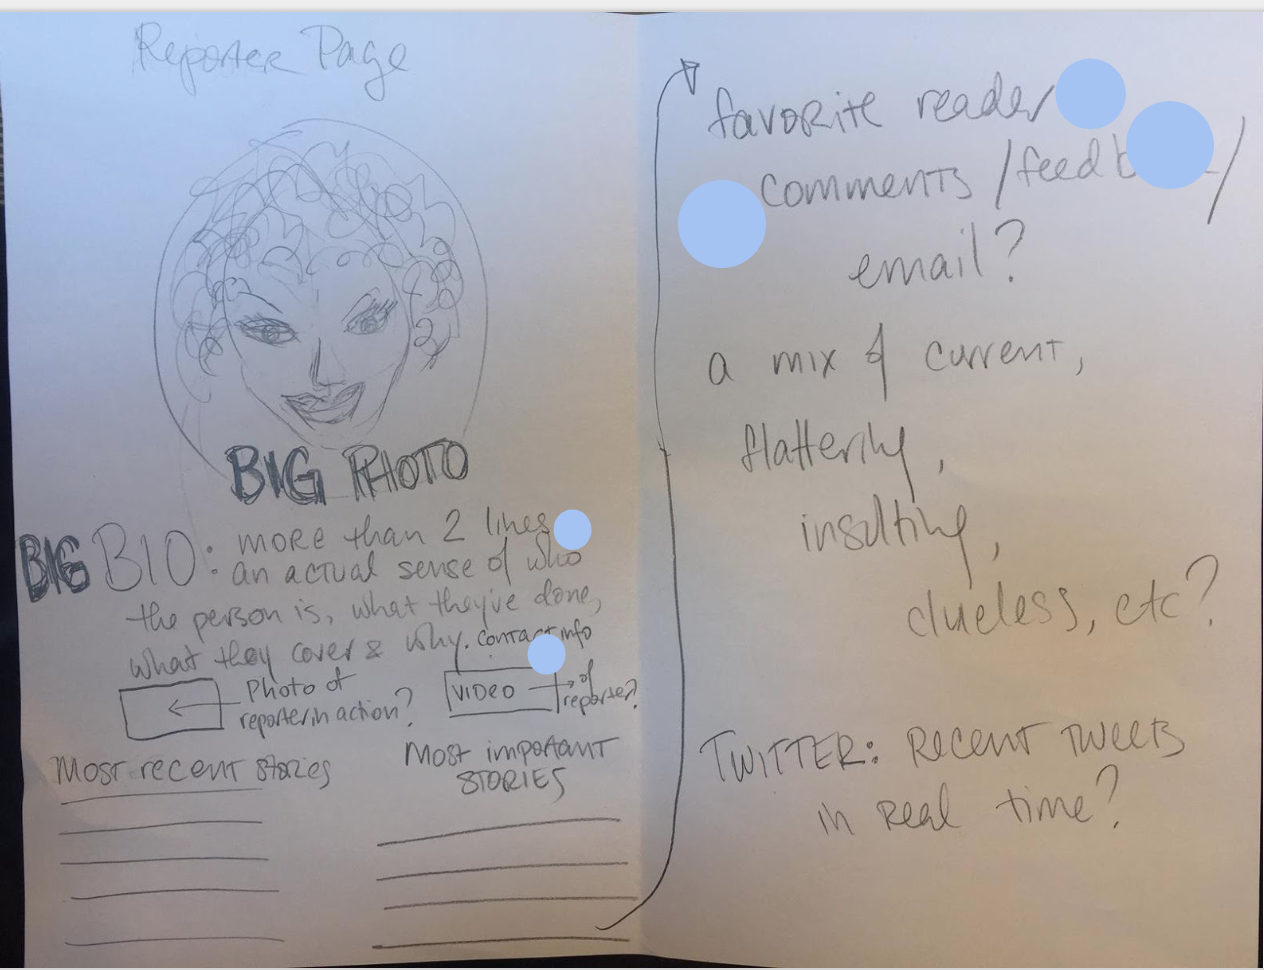 Reporter Page
BIG PHOTO
BIG BIO: more than 2 lines
an actual sense of who
the person is, what they've done,
what they cover & why. contact info
Photo of
reporter in action?
VIDEO
of
reporter?
Most recent stories
Most important
STORIES
favorite reader
comments / feedb /
email?
a mix of current,
flattering,
insulting,
clueless, etc?
TWITTER: Recent tweets
in real time?